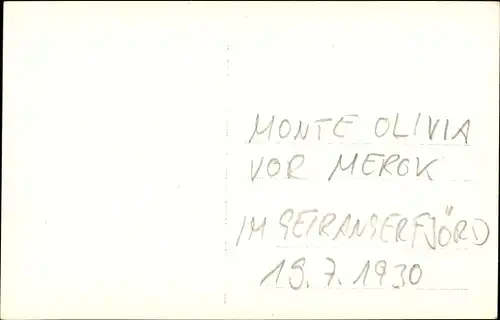 MONTE OLIVIA
VOR MEROK
IM GEIRANGERFJÖRD
19.7.1930